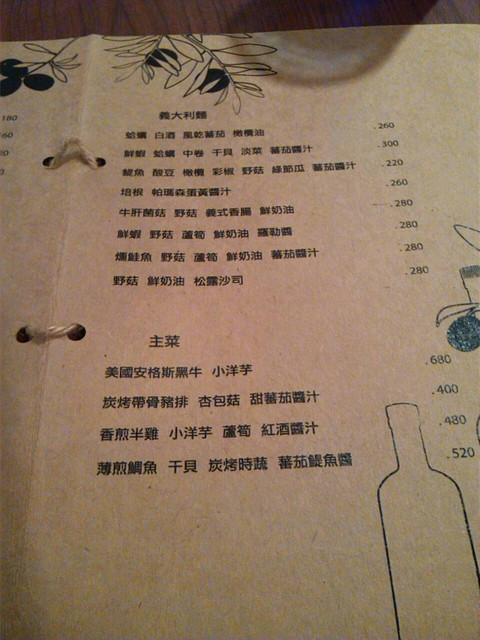 180
60
0
義大利麵
蛤蠣 白酒 風乾蕃茄 橄欖油 .260
鮮蝦 蛤蠣 中卷 干貝 淡菜 蕃茄醬汁 .300
鯷魚 酸豆 橄欖 彩椒 野菇 綠節瓜 蕃茄醬汁 .220
培根 帕瑪森蛋黃醬汁 .260
牛肝菌菇 野菇 義式香腸 鮮奶油 .280
鮮蝦 野菇 蘆筍 鮮奶油 羅勒醬 .280
燻鮭魚 野菇 蘆筍 鮮奶油 蕃茄醬汁 .280
野菇 鮮奶油 松露沙司 .280
主菜
美國安格斯黑牛 小洋芋 .680
炭烤帶骨豬排 杏包菇 甜蕃茄醬汁 .400
香煎半雞 小洋芋 蘆筍 紅酒醬汁 .480
薄煎鯛魚 干貝 炭烤時蔬 蕃茄鯷魚醬 .520